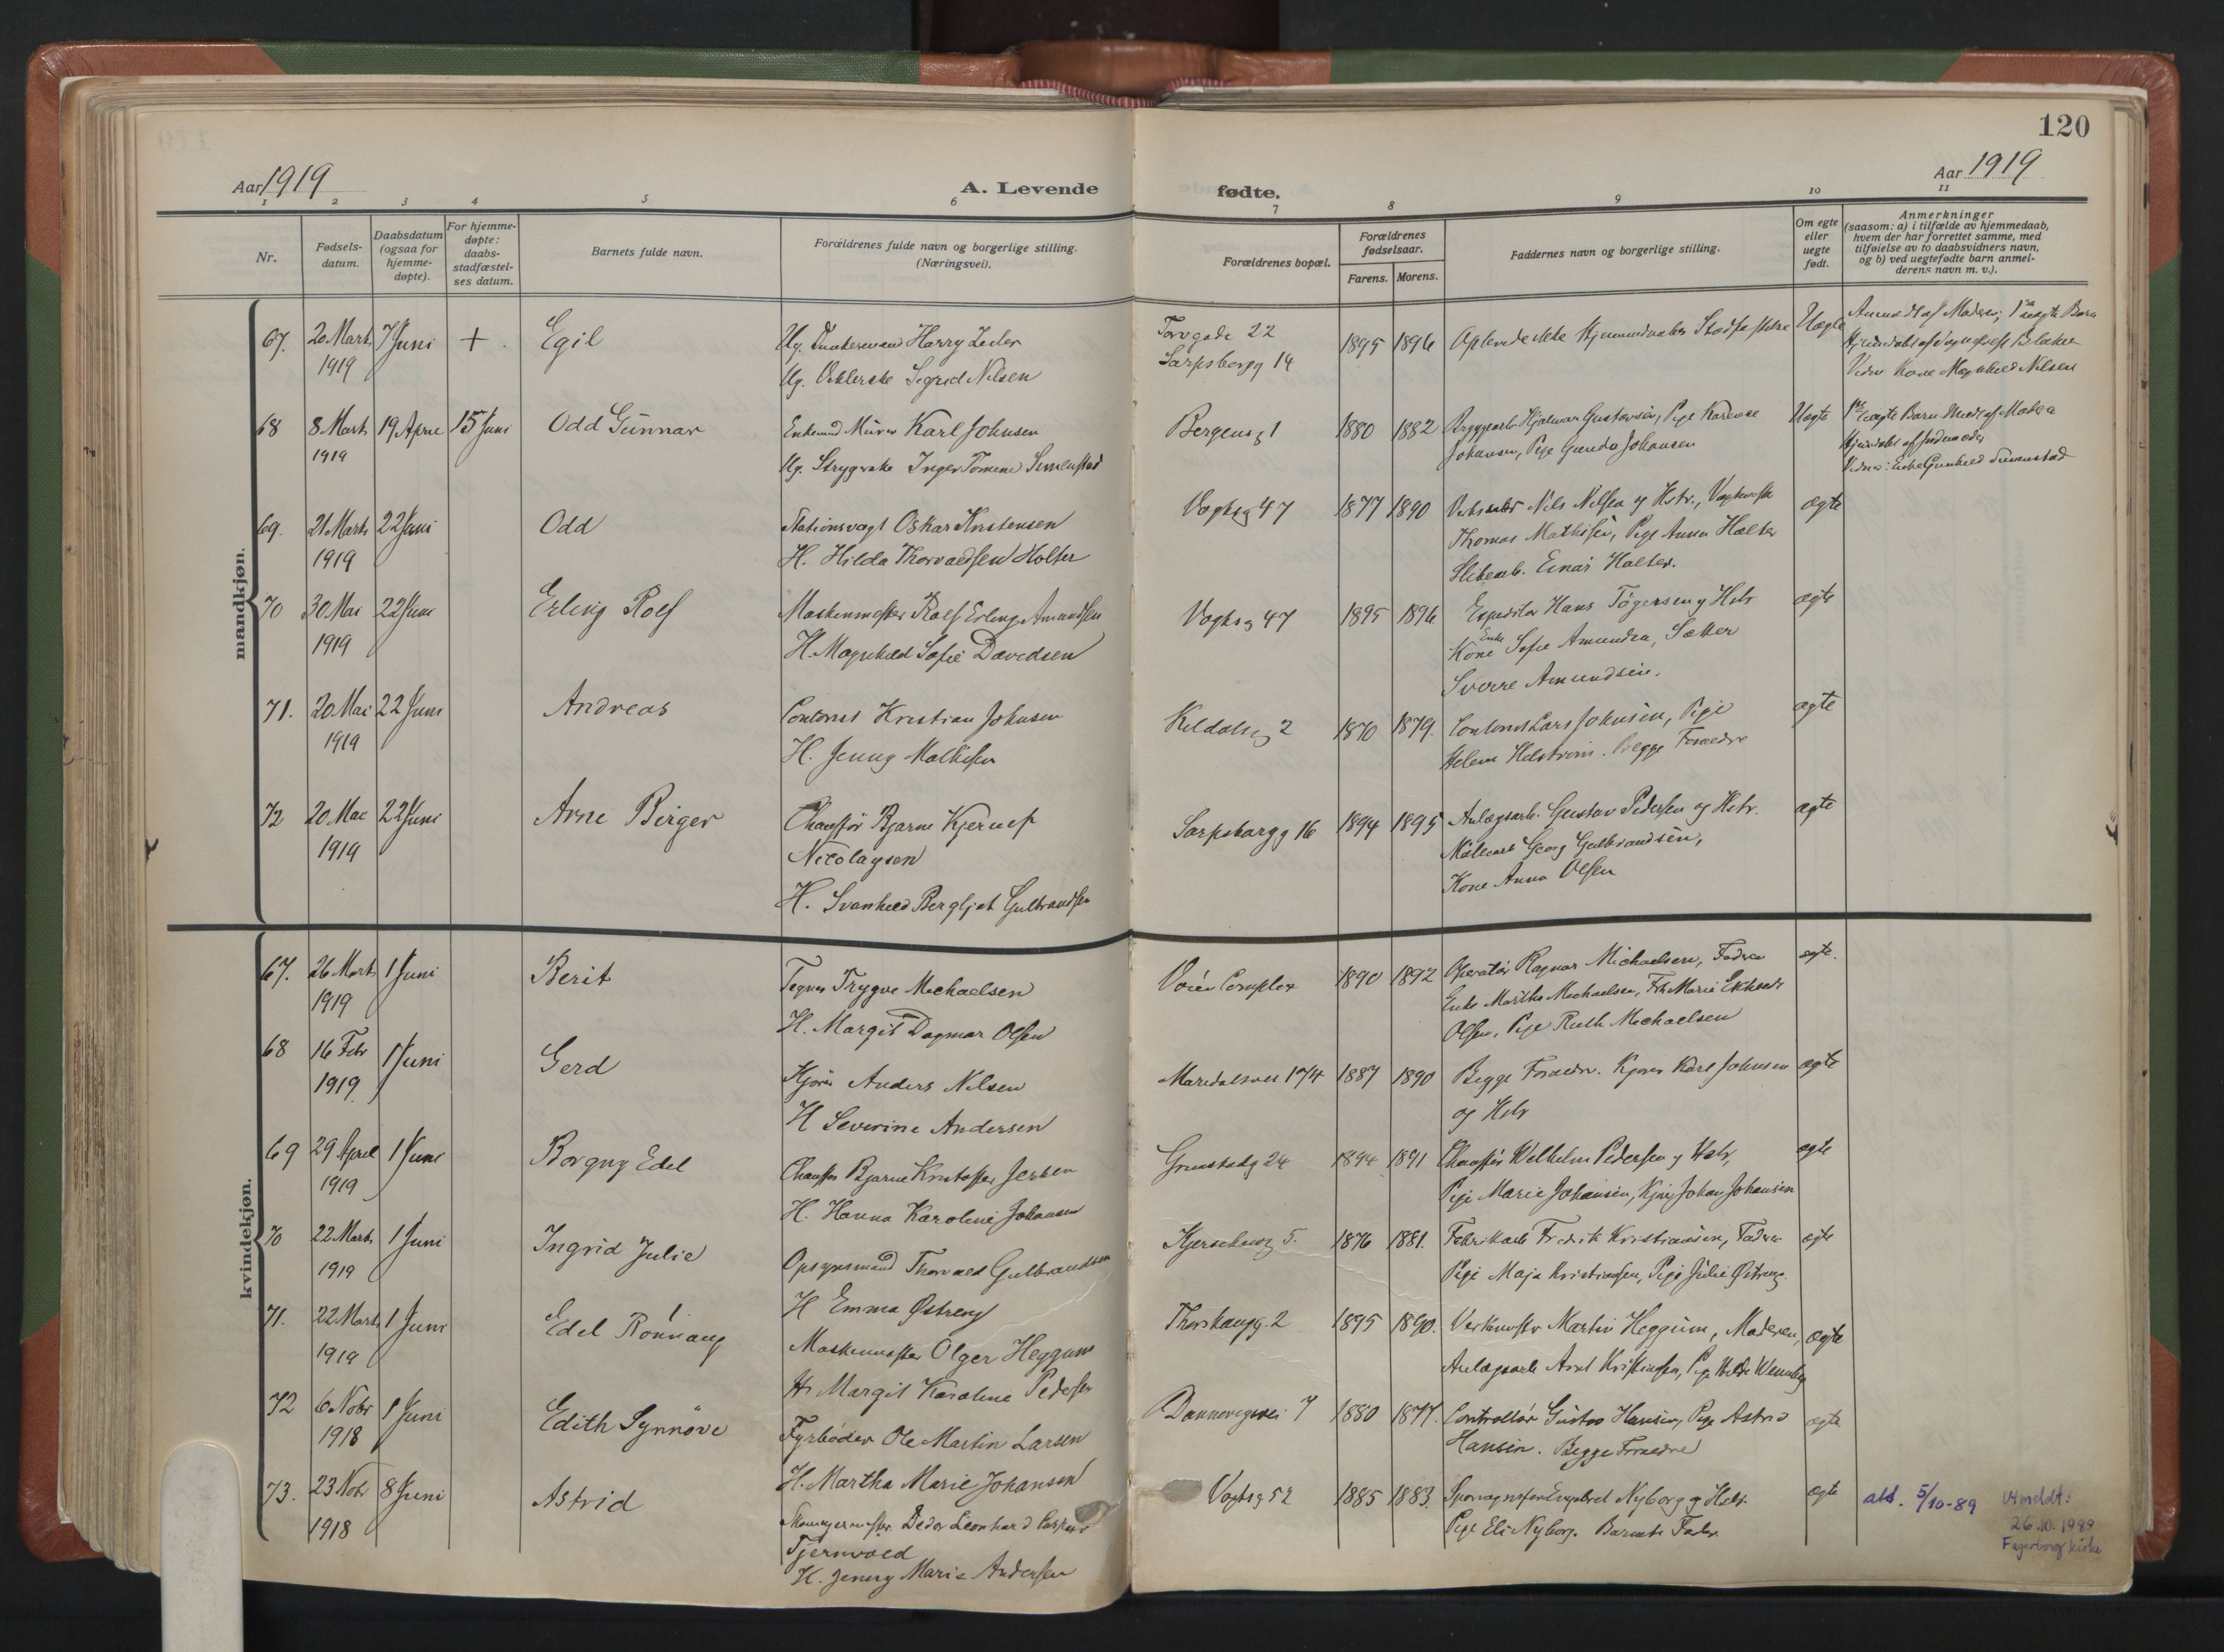 120
Aar 1919
A. Levende fødte.
Aar 1919
1 2 3 4 5 6 7 8 9 10 11
Nr.
Fødsels-
datum.
Daabsdatum
(ogsaa for
hjemme-
døpte).
For hjemme-
døpte:
daabs-
stadfæstel-
ses datum.
Barnets fulde navn.
Forældrenes fulde navn og borgerlige stilling.
(Næringsvei).
Forældrenes bopæl.
Forældrenes
fødselsaar.
Farens. Morens.
Faddernes navn og borgerlige stilling.
Om egte
eller
uegte
født.
Anmerkninger
(saasom: a) i tilfælde av hjemmedaab,
hvem der har forrettet samme, med
tilføielse av to daabsvidners navn,
og b) ved uegtefødte barn anmel-
derens navn m. v.).
mandkjøn.
67. 20 Marts 7 Juni + Egil Ug. Harry Zeder Torvgade 22 1895 1896 Uegte
1919 Ug. Sigrid Nilsen Sarpsborgg 14
Vidne Kone Magnhild Nilsen
68 8 Marts 19 April 15 Juni Odd Gunnar Enkemand Murer Karl Johnsen Bergensg 1 1880 1882 Hjalmar Gustavsen, Pige Karense Uegte
1919 Ug. Inger Tomine Simenstad Johansen, Pige Gunda Johansen
Vidne: Enke Gunhild Simenstad
69. 21 Marts 22 Juni Odd Stationsvagt Oskar Kristensen Vogtsg 47 1877 1890 Nils Nilsen og Hstr., ægte
1919 H. Hilda Thorvaldsen Holter Thomas Mathisen, Pige Anna Holter
Einar Holter.
70 30 Mai 22 Juni Erling Rolf Maskinmester Rolf Erling Amundsen Vogtsg 47 1895 1896 Expeditør Hans Tøgersen og Hstr ægte
1919 H. Magnhild Sofie Davidsen Enke
Kone Sofie Amundsen, Sætter
Sverre Amundsen.
71. 20 Mai 22 Juni Andreas Contorist Kristian Johnsen Kildalsg 2 1870 1879. Contorist Lars Johnsen, Pige ægte
1919 H. Jenny Mathisen Helene Helstrøm. Begge Forældre
72 20 Mai 22 Juni Arne Birger Chauffør Bjarne Kjerulf Sarpsborgg 16 1894 1895 Anlægsarb. Gustav Pedersen og Hstr. ægte
1919 Nicolaysen Georg Gulbrandsen,
H. Svanhild Bergljot Gulbrandsen Kone Anna Olsen
kvindekjøn.
67. 26 Marts 1 Juni Berit Tegner Trygve Michaelsen 1890 1892 Operatør Ragnar Michaelsen, Faderen ægte.
1919 H. Margit Dagmar Olsen Enke Martha Michaelsen, Frk Marie
Olsen, Pige Ruth Michaelsen
68 16 Febr 1 Juni Gerd Kjører Anders Nilsen Maridalsvei 174 1887 1890 Begge Forældre. Kjører Karl Johnsen ægte
1919 H Severine Andersen og Hstr
69 29 April 1 Juni Borgny Edel Chauffør Bjarne Kristoffer Jensen Grimstadg 24 1894 1891 Chauffør Wilhelm Pedersen og Hstr, ægte
1919 H. Hanna Karoline Johansen Pige Marie Johansen, Kjører Johan Johansen
70 22 Marts 1 Juni Ingrid Julie Opsynsmand Thorvald Gulbrandsen Kjerschowsg 5. 1876 1881. Fabrikarb Fredrik Kristiansen, Faderen ægte
1919 H Emma Østreng Pige Maja Kristiansen, Pige Julie Østreng.
71. 22 Marts 1 Juni Edel Rönnaug Maskinmester Olger Heggum Thorshaugg. 2 1895 1890. Martin Heggum, Moderen, ægte
1919 H. Margit Karoline Pedersen Anlægsarb Kristiansen, Pige
72 6 Nobr 1 Juni Edith Synnöve Fyrbøder Ole Martin Larsen Dannevigsvei 7 1880 1877. Controllør Gustav Hansen, Pige Astrid ægte
1918 H. Martha Marie Johansen Hansen. Begge Forældre
73. 23 Nobr 8 Juni Astrid Peder Leonhard Vogtsg 52 1885 1883. Nyborg og Hstr. ægte att. 5/10-89
1918 Tjernvold Pige Eli Nyborg. Barnets Fader.
H. Jenny Marie Andersen
Utmeldt:
26.10.1989
Fagerborg kirke